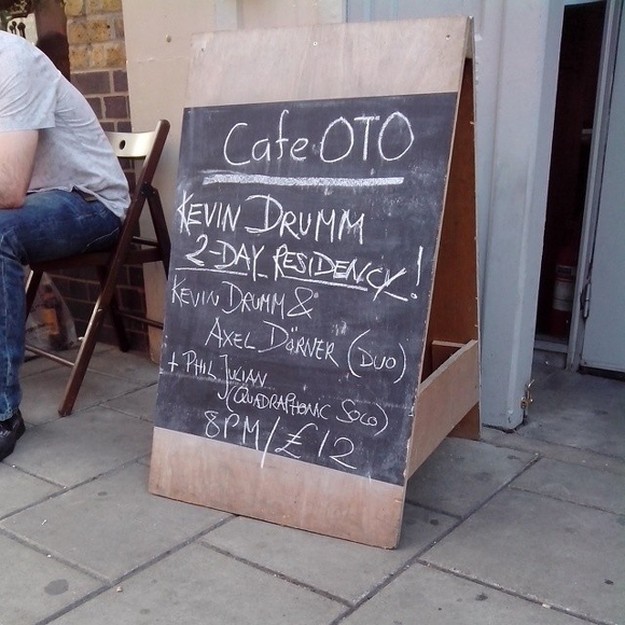 Cafe OTO
KEVIN DRUMM
2-DAY RESIDENCY!
KEVIN DRUMM &
AXEL DÖRNER (DUO)
+ PHIL JULIAN
(QUADRAPHONIC SOLO)
8PM/£12